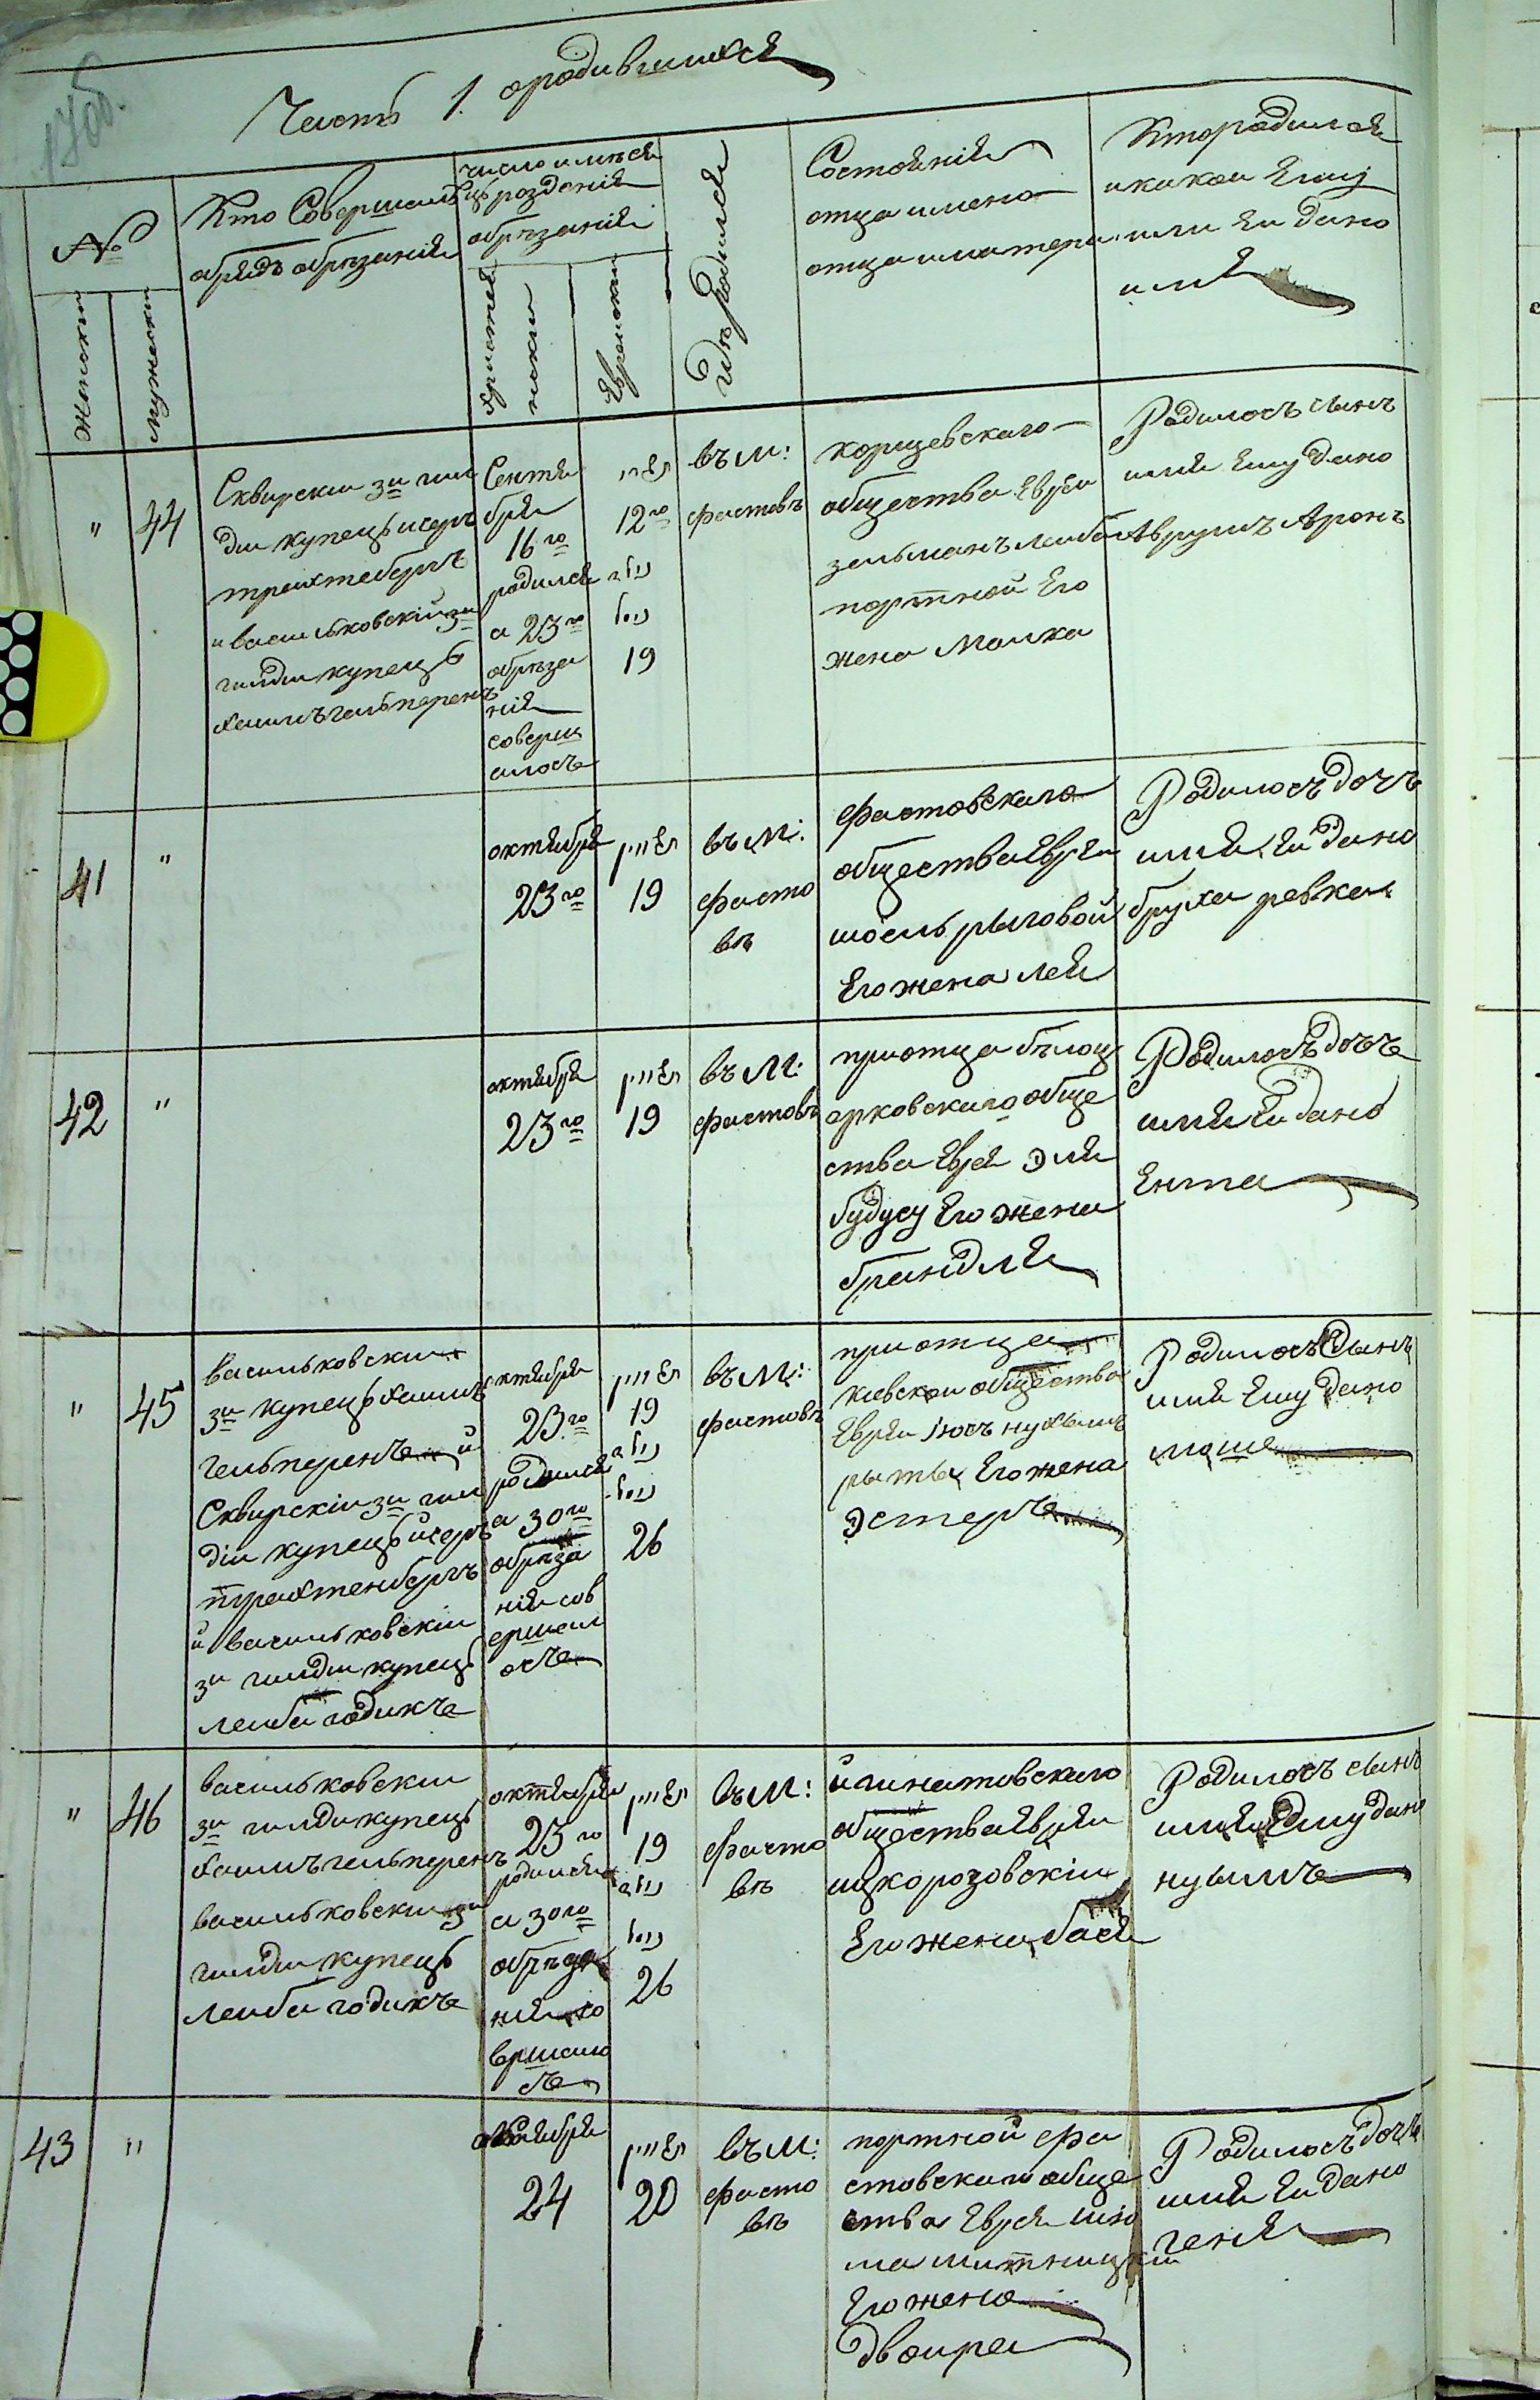 17об.
Часть 1. ородившихся
№
Женскии
Мужескии
Кто Совершалъ
обрядъ обрезания
число имеся
цъ рождения
обрѣзания
христия
нскии
Еврейскии
Гдѣ родился
Состояния
отца имена
отца иматери
Кто родился
икакои Ему
или Еи дано
имя
"
44
Сквирскии 3и гил
дии купецъ исеръ
трахтеберъ
и васильковскій 3и
гилдии купецъ
хаимъ гельперенъ
Сентя
бря
16го
родился
а 23го
обреза
ния
соверш
илосъ
תשרי
12го
נולד
נימול
19
въ м:
фастовъ
корщевскаго
общества Евреи
зельманъ леиба
портной Его
жена Малка
Родилосъ сынъ
имя Ему дано
Аврумъ Аронъ
41
"
октября
23го
חשון
19
въ м:
фасто
вѣ
фастовскаго
общества Евреи
шоель рыговой
Его жена Лея
Родилосъ дочъ
имя Еи дано
бруха ревка
42
"
октября
23го
חשון
19
въ м:
фастовъ
при отца бѣлоц
ерковскаго обще
ства Еврея Эля
будусу Его жена
брандля
Родилосъ дочъ
имя Еи дано
Ента
"
45
васильковскии
3и купецъ хаимъ
гельперенъ и
Сквирскіи 3и гил
діи купецъ исеръ
трахтенберъ
и васильковскіи
3и гилдии купецъ
леиба годикъ
октября
23го
родился
а 30го
обрѣза
ния сов
ершил
осъ
חשון
19
נולד
נימול
26
въ м:
фастовъ
при отца
киевскои общества
Евреи Іосъ нухымъ
рытва Его жена
Эстеръ
Родилосъ Сынъ
имя Ему дано
моше
"
46
васильковскии
3и гилди купецъ
хаимъ гельперенъ
васильковскии 3и
гилдии купецъ
леиба годикъ
октября
23го
родился
а 30го
обрѣза
ния со
вршило
съ
חשון
19
נולד
נימול
26
въ м:
Фасто
вѣ
игинатовскаго
общества Евреи
ицко розовскіи
Его жена бася
Родилосъ сынъ
имя Ему дано
нуымъ
43
"
октября
24
חשון
20
въ м:
фасто
вѣ
портной фа
стовскаго обще
ства Еврея шло
ма митницкіи
Его жена
двоира
Родилосъ дочъ
имя Еи дано
геня